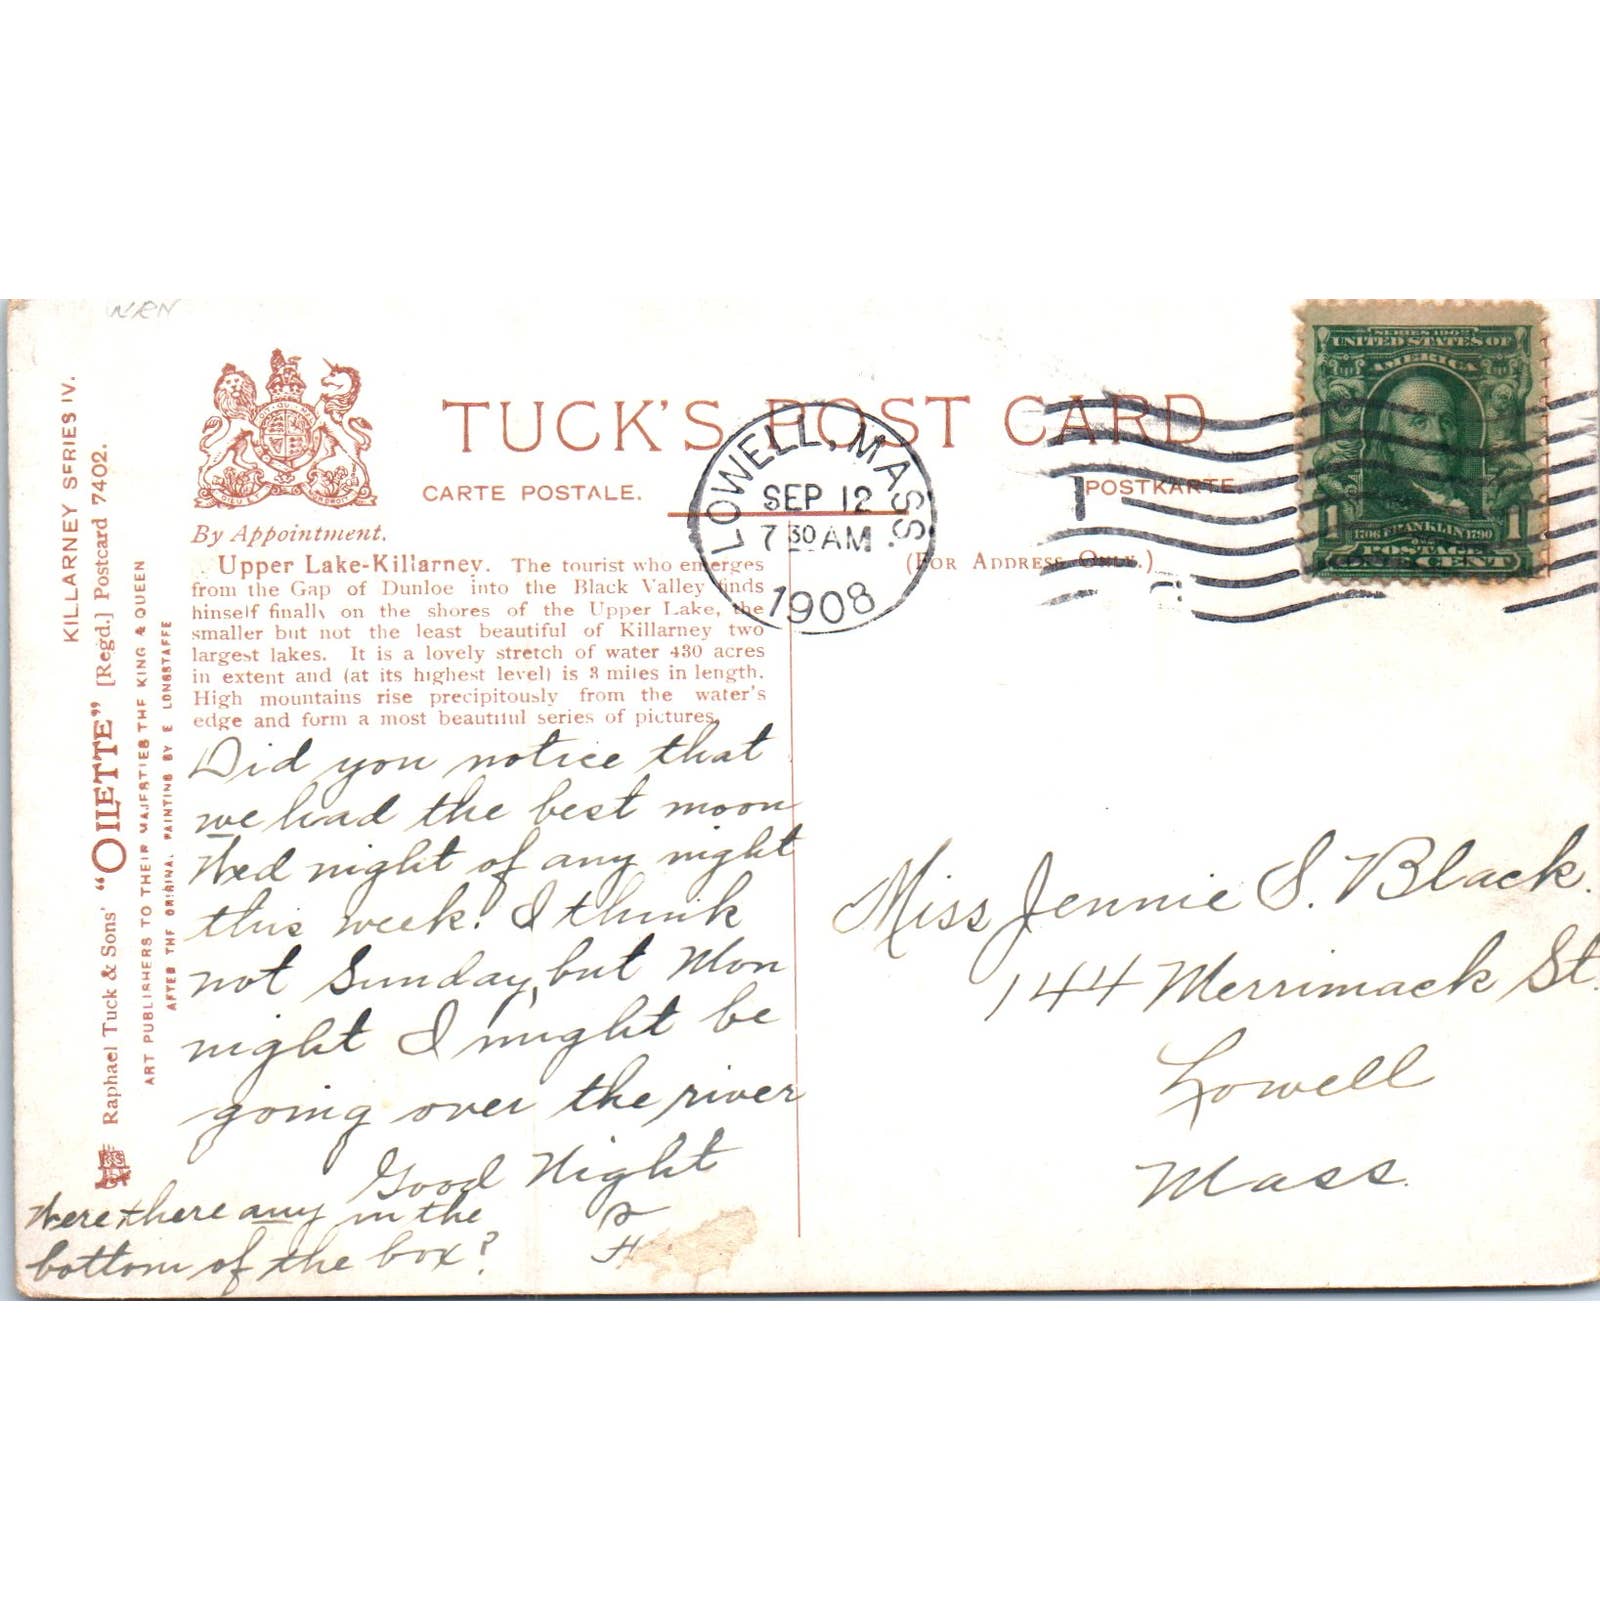 KILLARNEY SERIES IV.
Raphael Tuck & Sons' "OILETTE" [Regd.] Postcard 7402.
ART PUBLISHERS TO THEIR MAJESTIES THE KING & QUEEN
AFTER THE ORIGINAL PAINTING BY E LONGSTAFFE
TUCK'S POST CARD
CARTE POSTALE.
POSTKARTE.
By Appointment.
(FOR ADDRESS ONLY.)
Upper Lake-Killarney. The tourist who emerges
from the Gap of Dunloe into the Black Valley finds
himself finally on the shores of the Upper Lake, the
smaller but not the least beautiful of Killarney two
largest lakes. It is a lovely stretch of water 430 acres
in extent and (at its highest level) is 3 miles in length.
High mountains rise precipitously from the water's
edge and form a most beautiful series of pictures.
LOWELL, MASS.
SEP 12
7 30 AM
1908
SERIES 1902
UNITED STATES OF
AMERICA
1 1
1706 FRANKLIN 1790
POSTAGE
ONE CENT
Did you notice that
we had the best moon
Wed night of any night
this week? I think
not Sunday, but Mon
night I might be
going over the river
Good Night
Were there any in the
bottom of the box?
Miss Jennie S. Black.
144 Merrimack St.
Lowell
Mass.